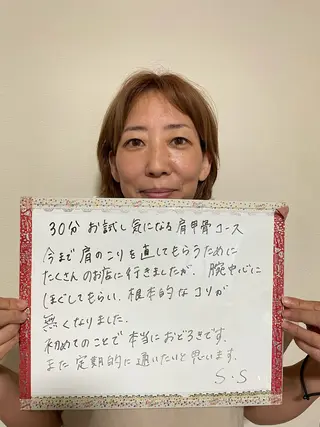 30分 お試し気になる肩甲骨コース
今まで肩のこりを直してもらうために
たくさんのお店に行きましたが、腕中心に
ほぐしてもらい、根本的なコリが
無くなりました。
初めてのことで本当におどろきです。
また定期的に通いたいと思います。
S.S